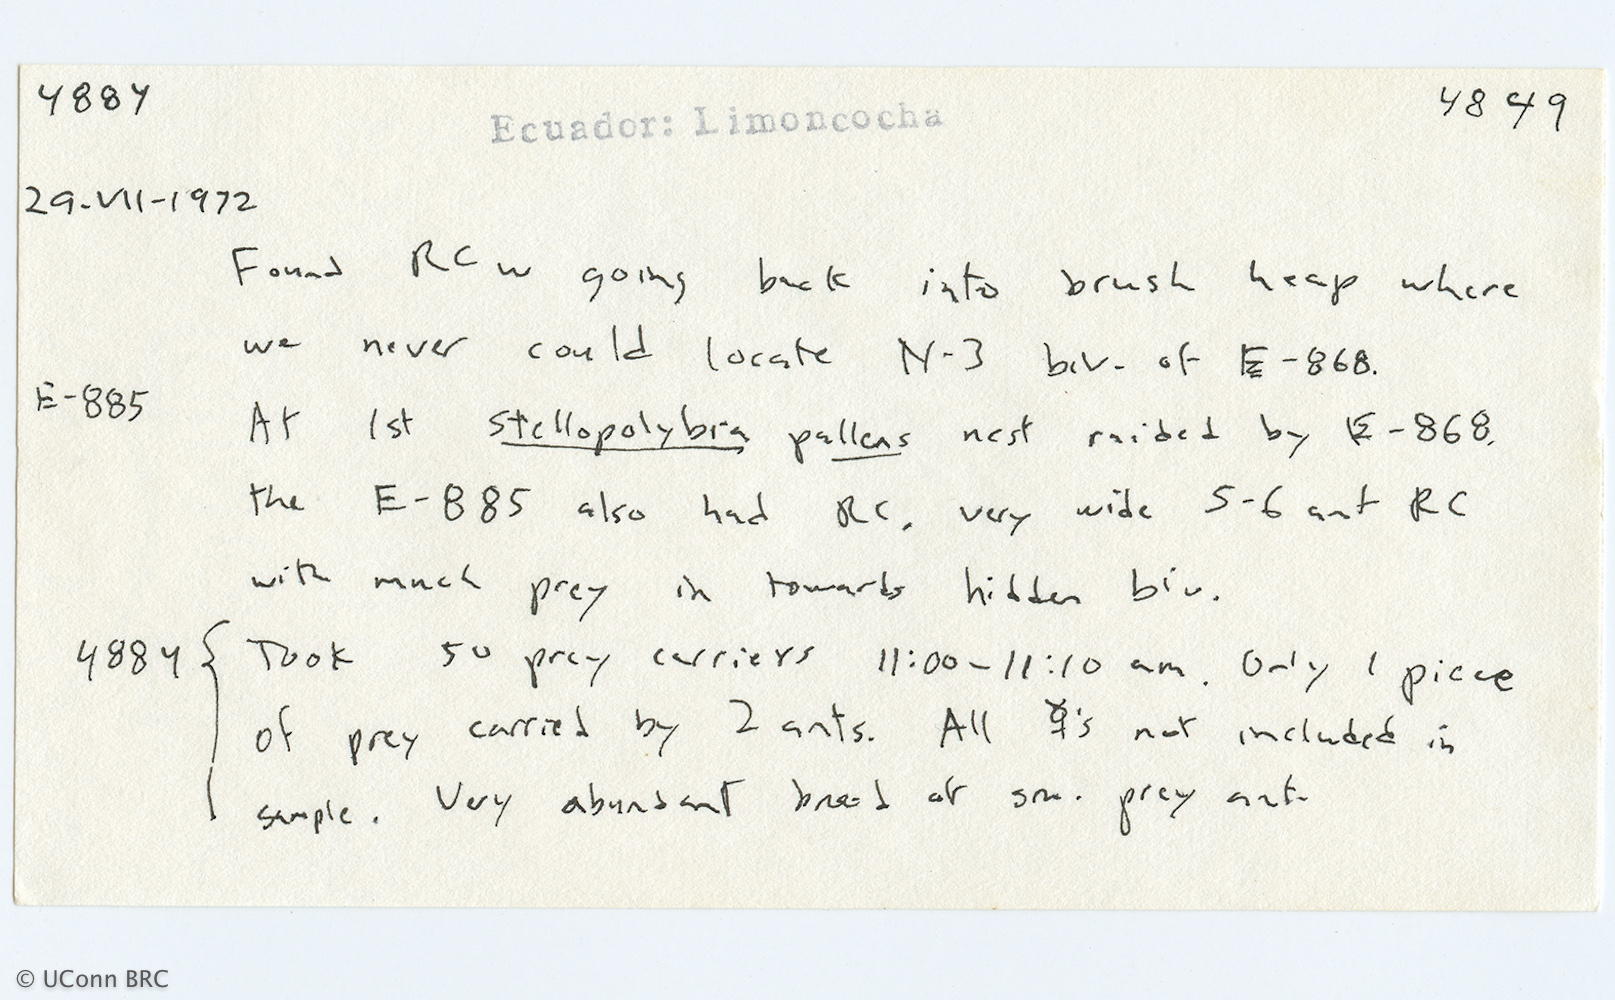 4884 4849
Ecuador: Limoncocha
29-VII-1972
Found RC w going back into brush heap where
we never could locate N-3 biv. of E-868.
E-885 At 1st Stellopolybia pallens nest raided by E-868.
the E-885 also had RC. very wide 5-6 ant RC
with much prey in towards hidden biv.
4884 { Took 50 prey carriers 11:00-11:10 am. Only 1 piece
of prey carried by 2 ants. All ☿'s not included in
sample. Very abundant brood of sm. prey ant.
© UConn BRC